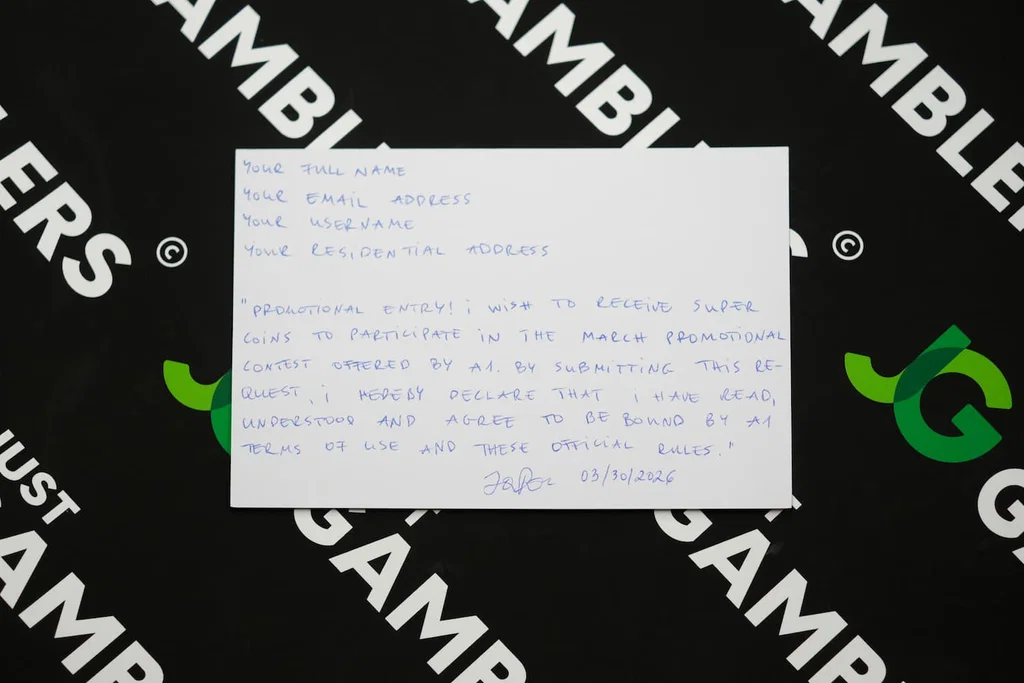 AMBL
AMBL
AMBLER
LERS
©
©
YOUR FULL NAME
YOUR EMAIL ADDRESS
YOUR USERNAME
YOUR RESIDENTIAL ADDRESS
"PROMOTIONAL ENTRY! i WISH TO RECEIVE SUPER
COINS TO PARTICIPATE IN THE MARCH PROMOTIONAL
CONTEST OFFERED BY A1. BY SUBMITTING THIS RE-
QUEST, i HEREBY DECLARE THAT i HAVE READ,
UNDERSTOOD AND AGREE TO BE BOUND BY A1
TERMS OF USE AND THESE OFFICIAL RULES."
03/30/2026
JG
JUST
GAMB
GAMB
GAMB
G